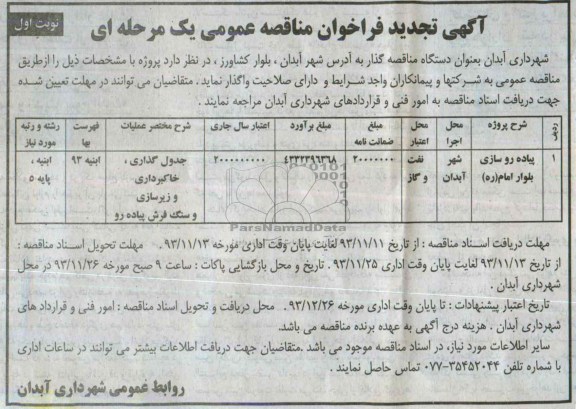 نوبت اول
آگهی تجدید فراخوان مناقصه عمومی یک مرحله ای
شهرداری آبدان بعنوان دستگاه مناقصه گذار به آدرس شهر آبدان ، بلوار کشاورز ، در نظر دارد پروژه با مشخصات ذیل را ازطریق
مناقصه عمومی به شرکتها و پیمانکاران واجد شرایط و دارای صلاحیت واگذار نماید . متقاضیان می توانند در مهلت تعیین شده
جهت دریافت اسناد مناقصه به امور فنی و قراردادهای شهرداری آبدان مراجعه نمایند .
ردیف | شرح پروژه | محل اجرا | محل اعتبار | مبلغ ضمانت نامه | مبلغ برآورد | اعتبار سال جاری | شرح مختصر عملیات | فهرست بها | رشته و رتبه مورد نیاز
۱ | پیاده رو سازی بلوار امام(ره) | شهر آبدان | نفت و گاز | | ۴۳۲۲۳۹۶۳۶۸ | ۲۰۰۰۰۰۰۰۰۰ | جدول گذاری ، خاکبرداری، و زیرسازی و سنگ فرش پیاده رو | ابنیه ۹۳ | ابنیه ، پایه ۵
ParsNamadData
مهلت دریافت اسناد مناقصه : از تاریخ ۹۳/۱۱/۱۱ لغایت پایان وقت اداری مورخه ۹۳/۱۱/۱۳ . مهلت تحویل اسناد مناقصه :
از تاریخ ۹۳/۱۱/۱۳ لغایت پایان وقت اداری ۹۳/۱۱/۲۵ . تاریخ و محل بازگشایی پاکات : ساعت ۹ صبح مورخه ۹۳/۱۱/۲۶ در محل
شهرداری آبدان .
تاریخ اعتبار پیشنهادات : تا پایان وقت اداری مورخه ۹۳/۱۲/۲۶ . محل دریافت و تحویل اسناد مناقصه : امور فنی و قرارداد های
شهرداری آبدان . هزینه درج آگهی به عهده برنده مناقصه می باشد.
سایر اطلاعات مورد نیاز، در اسناد مناقصه موجود می باشد .متقاضیان جهت دریافت اطلاعات بیشتر می توانند در ساعات اداری
با شماره تلفن ۳۵۴۵۲۰۴۴-۰۷۷ تماس حاصل نمایند .
روابط عمومی شهرداری آبدان